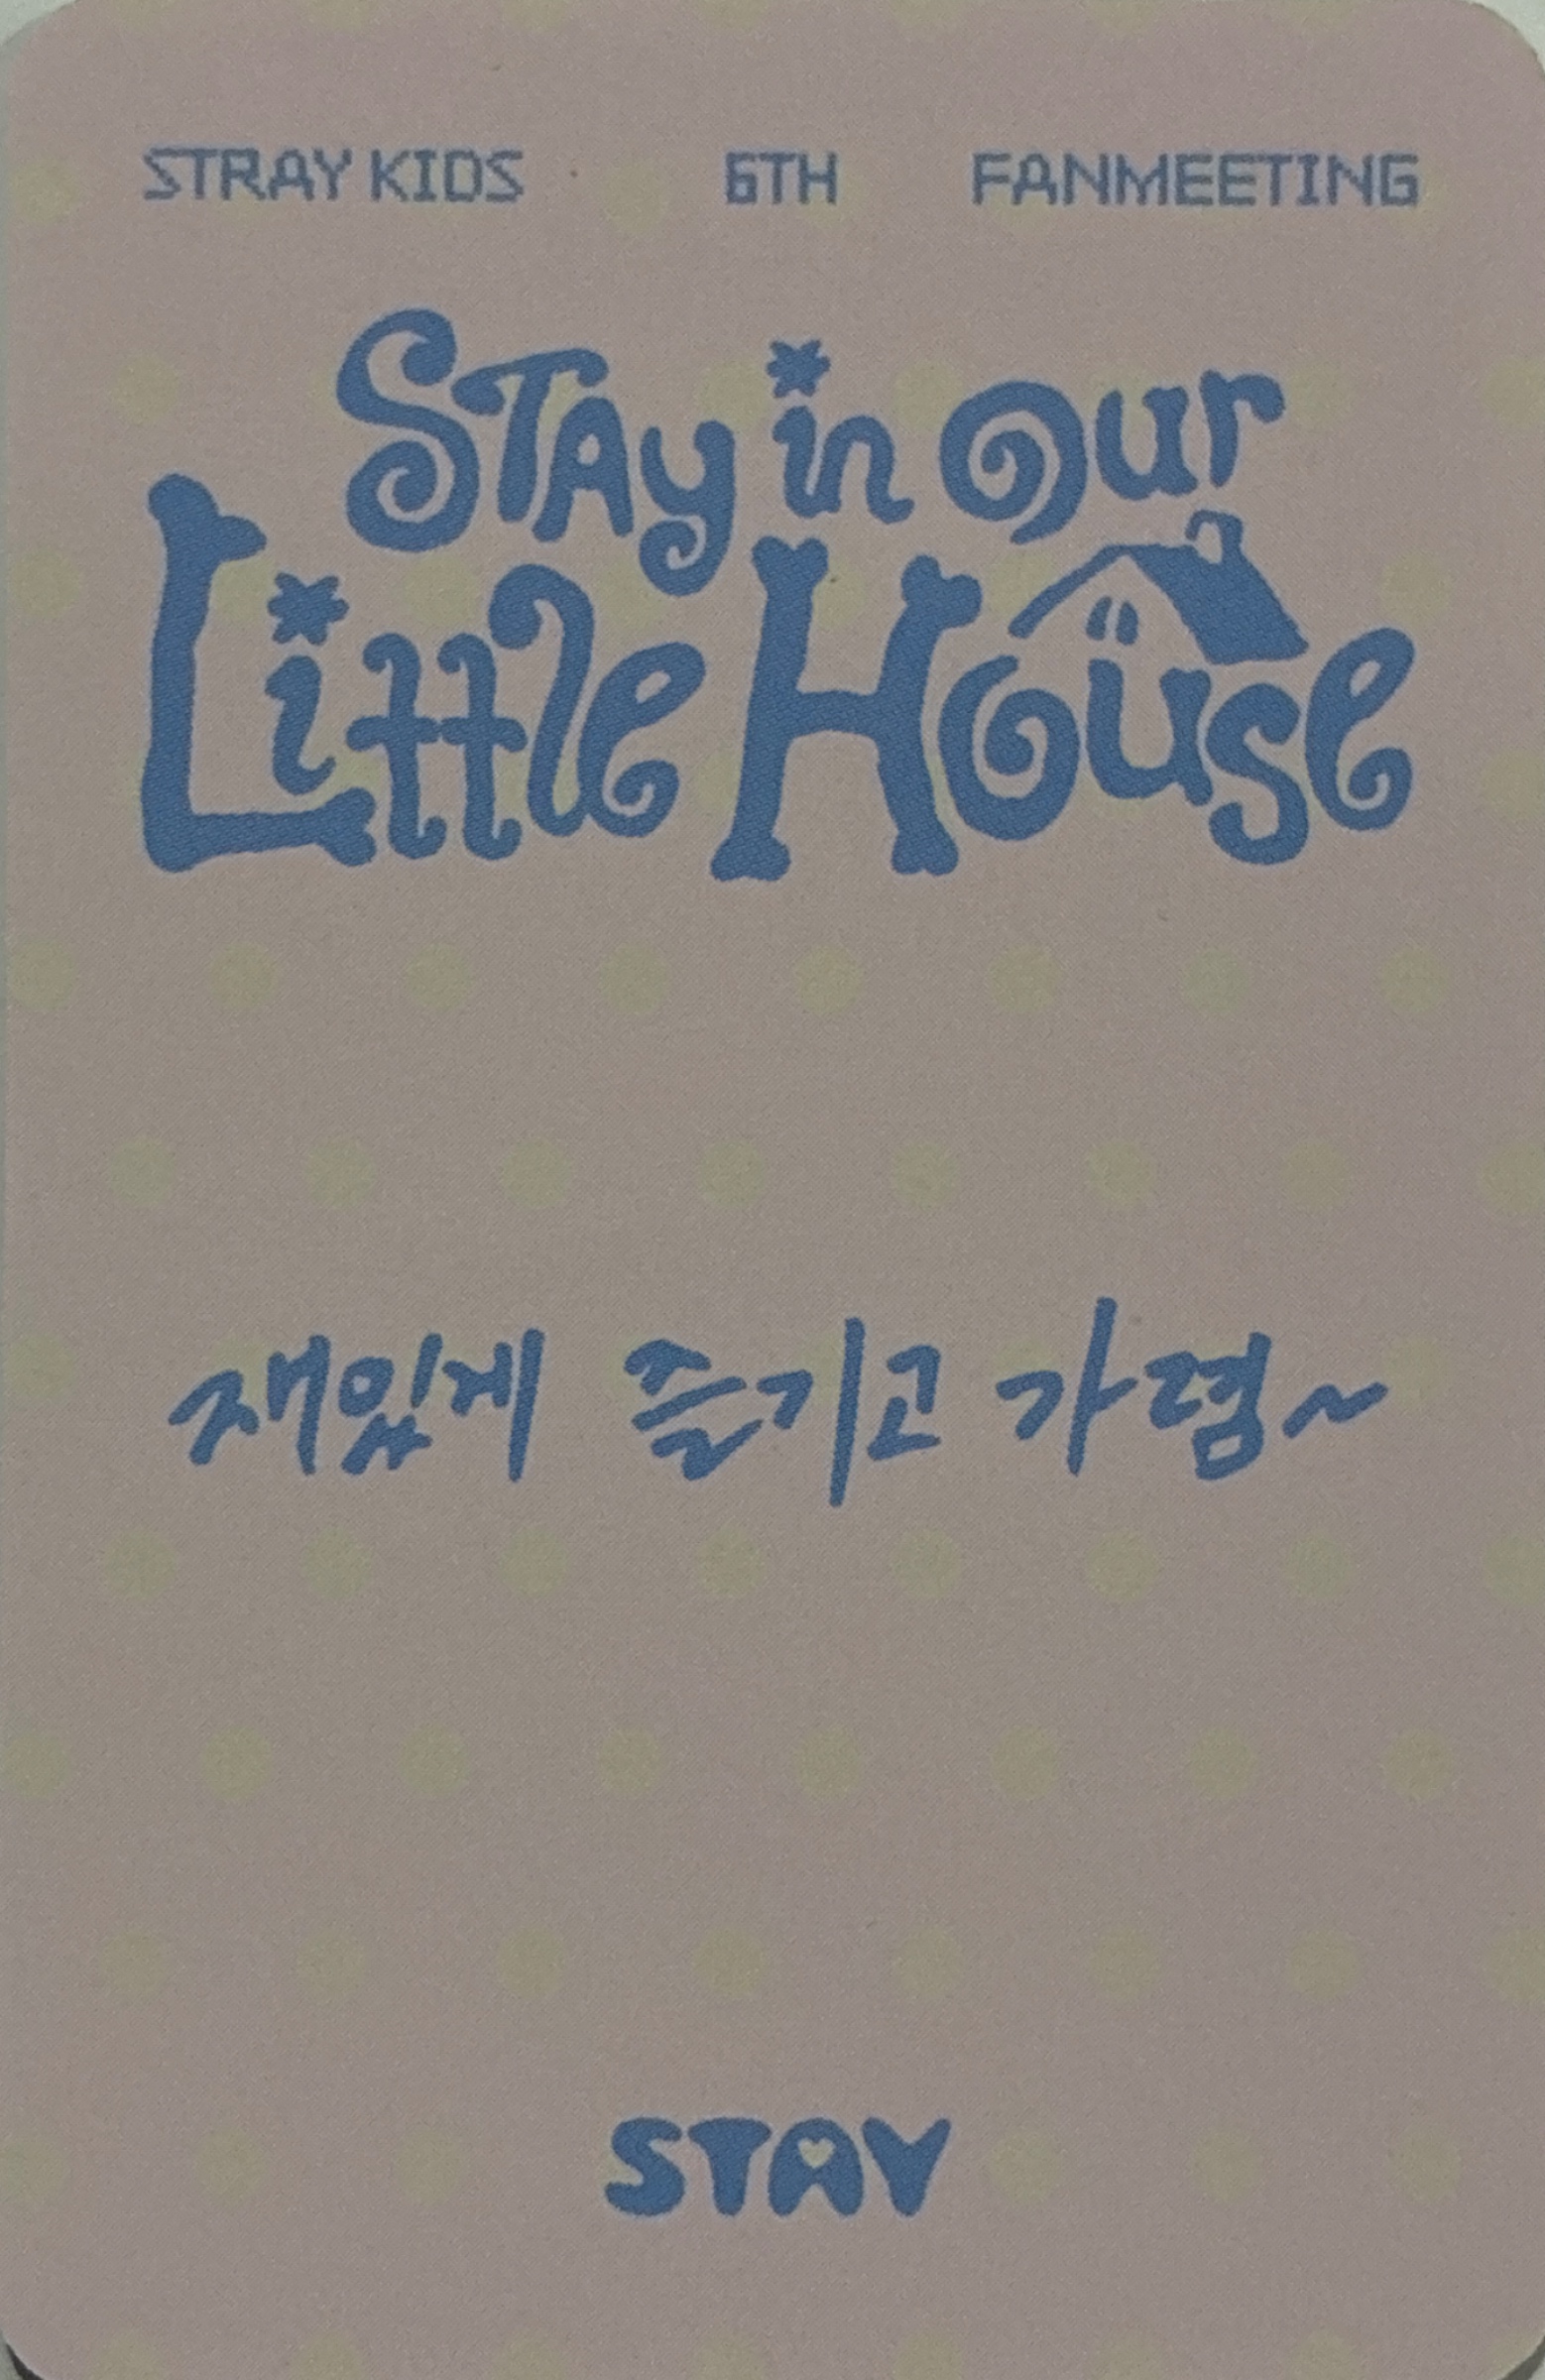 STRAY KIDS 6TH FANMEETING
STAy in our
Little House
재밌게 즐기고 가렴~
STAY